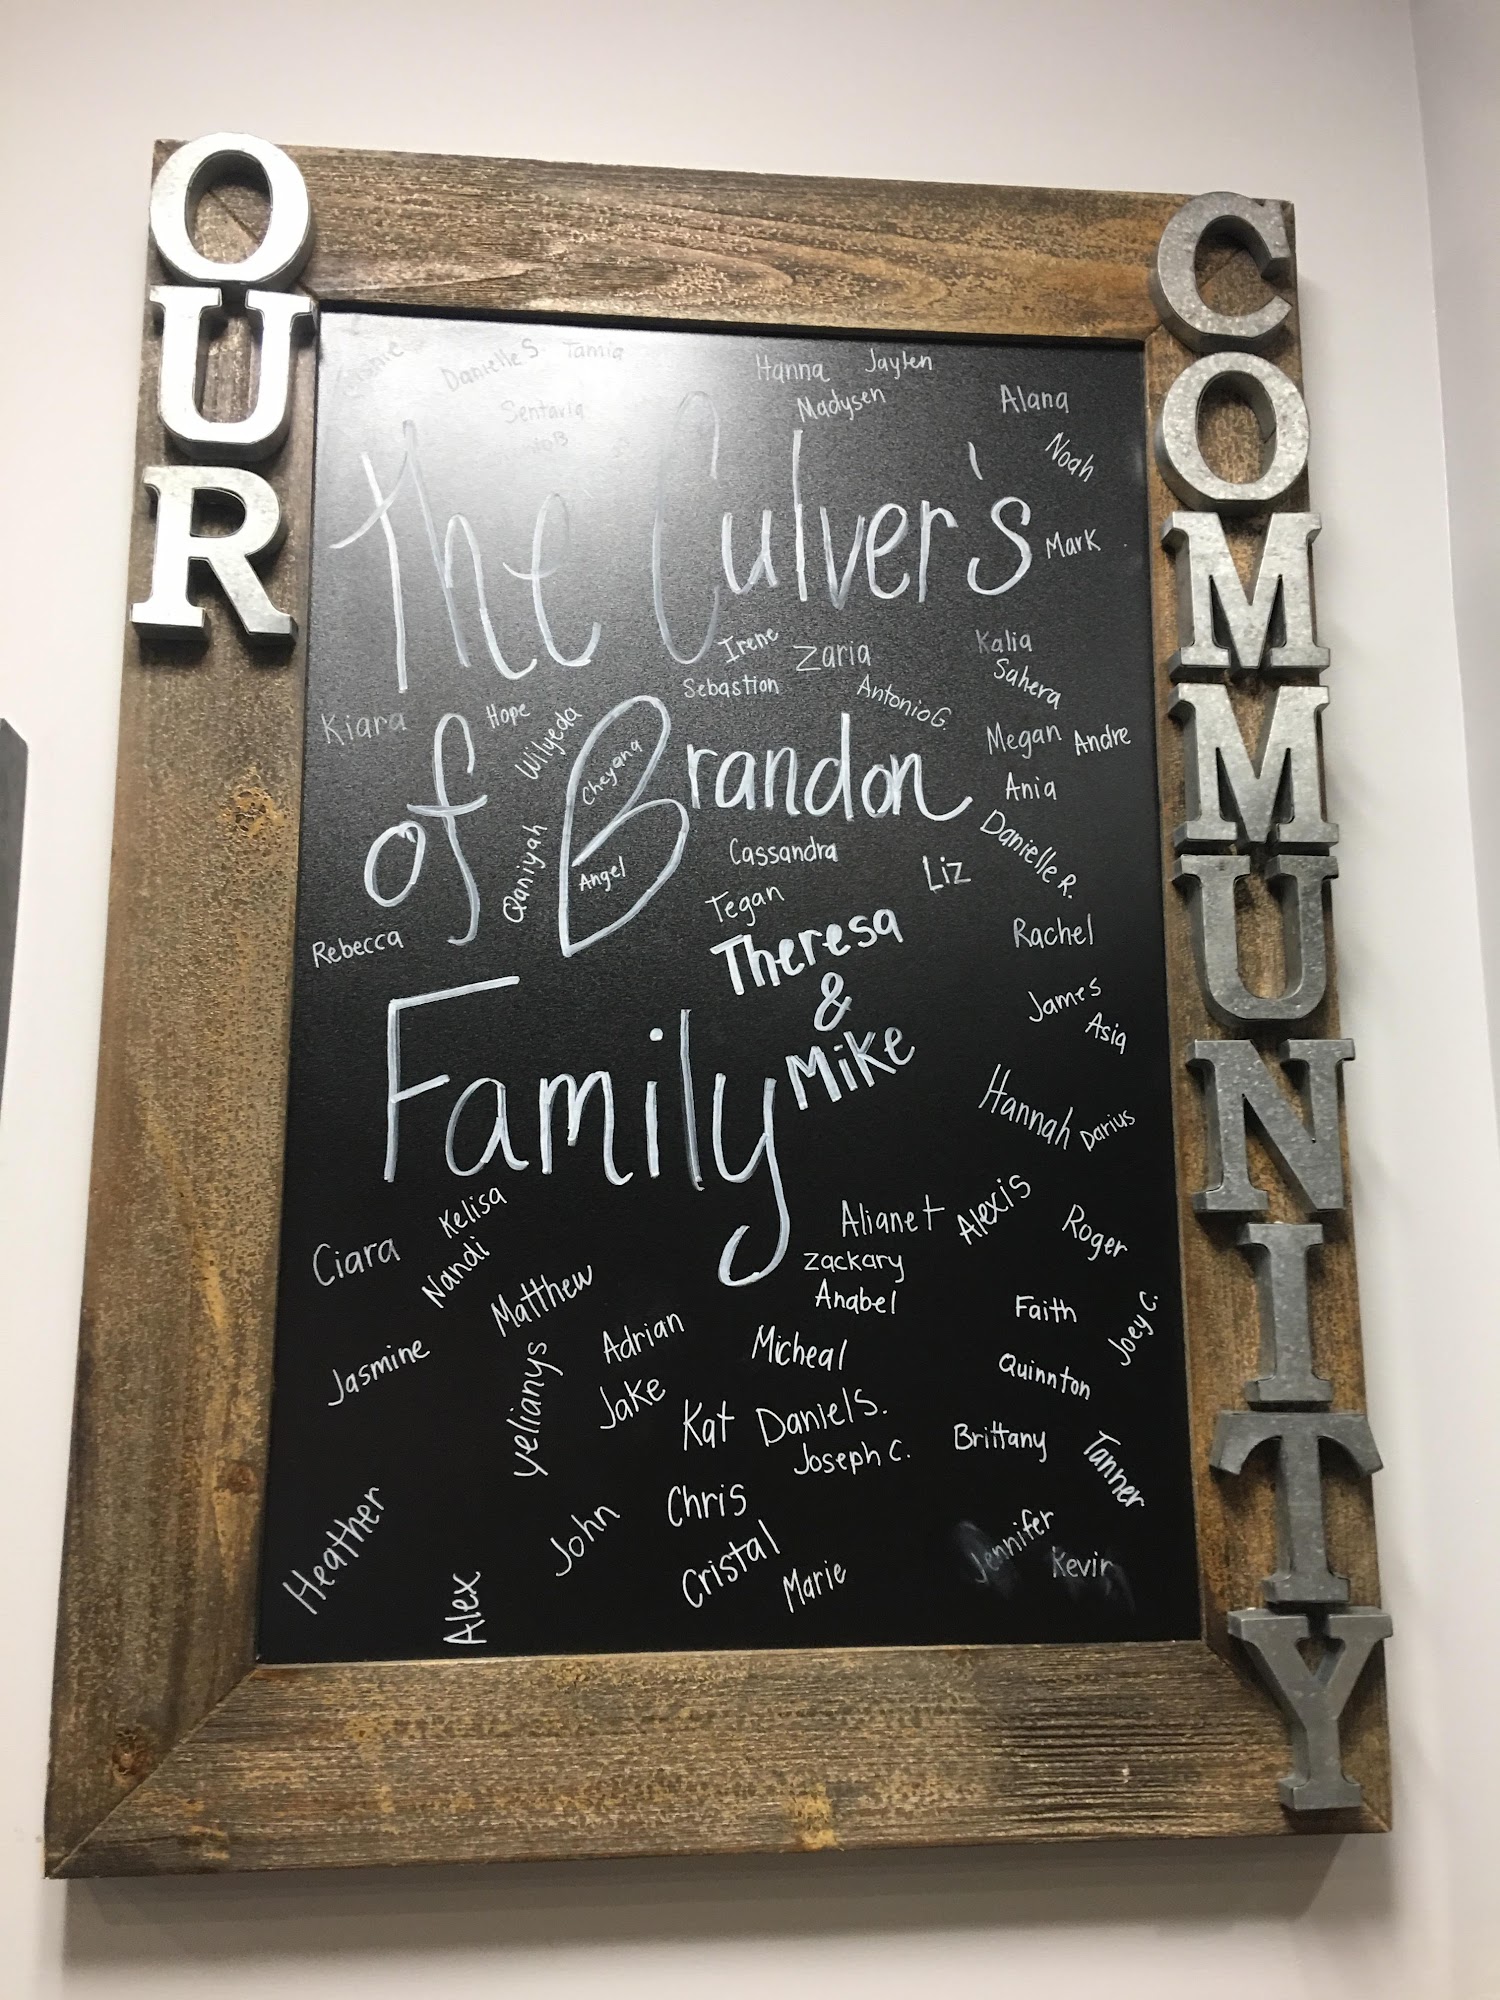 OUR
COMMUNITY
Danielle S
Tamia
Hanna
Jaylen
Sentaria
Madysen
Alana
Noah
The Culver's
Mark
Irene
Zaria
Kalia
Sebastion
Antonio G.
Sahera
Kiara
Hope
Wilyeda
Cheyana
Megan
Andre
of Brandon
Ania
Qaniyah
Angel
Cassandra
Liz
Danielle R.
Tegan
Rebecca
Theresa
&
Mike
Rachel
James
Asia
Family
Hannah
Darius
Kelisa
Alianet
Alexis
Roger
Ciara
Nandi
Zackary
Matthew
Anabel
Faith
Joey C.
Jasmine
Yelianys
Adrian
Micheal
Quinnton
Jake
Kat
Daniel S.
Joseph C.
Brittany
Tanner
Heather
John
Chris
Jennifer
Kevin
Alex
Cristal
Marie